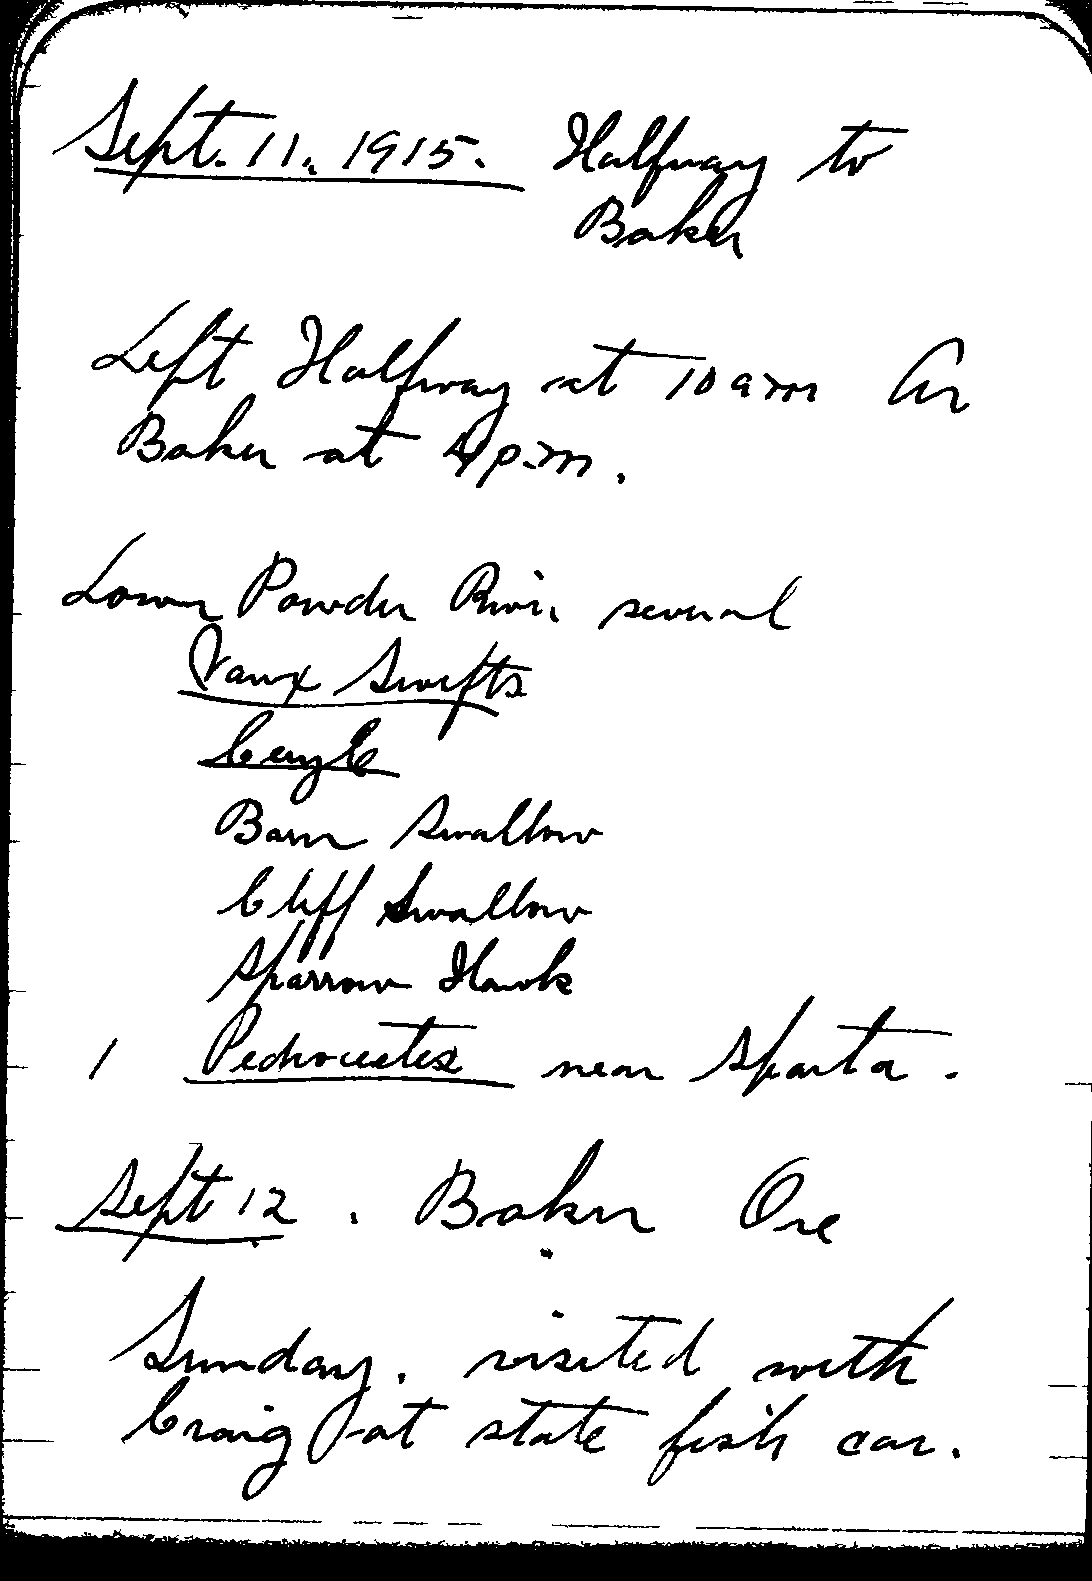 Sept. 11, 1915. Halfway to
Baker
Left Halfway at 10 am Ar
Baker at 4 p.m.
Lower Powder River several
Vaux Swifts
Ceryle
Barn Swallow
Cliff Swallow
Sparrow Hawk
1 Pediocaetes near Sparta.
Sept 12. Baker Ore
Sunday. visited with
Craig at state fish car.